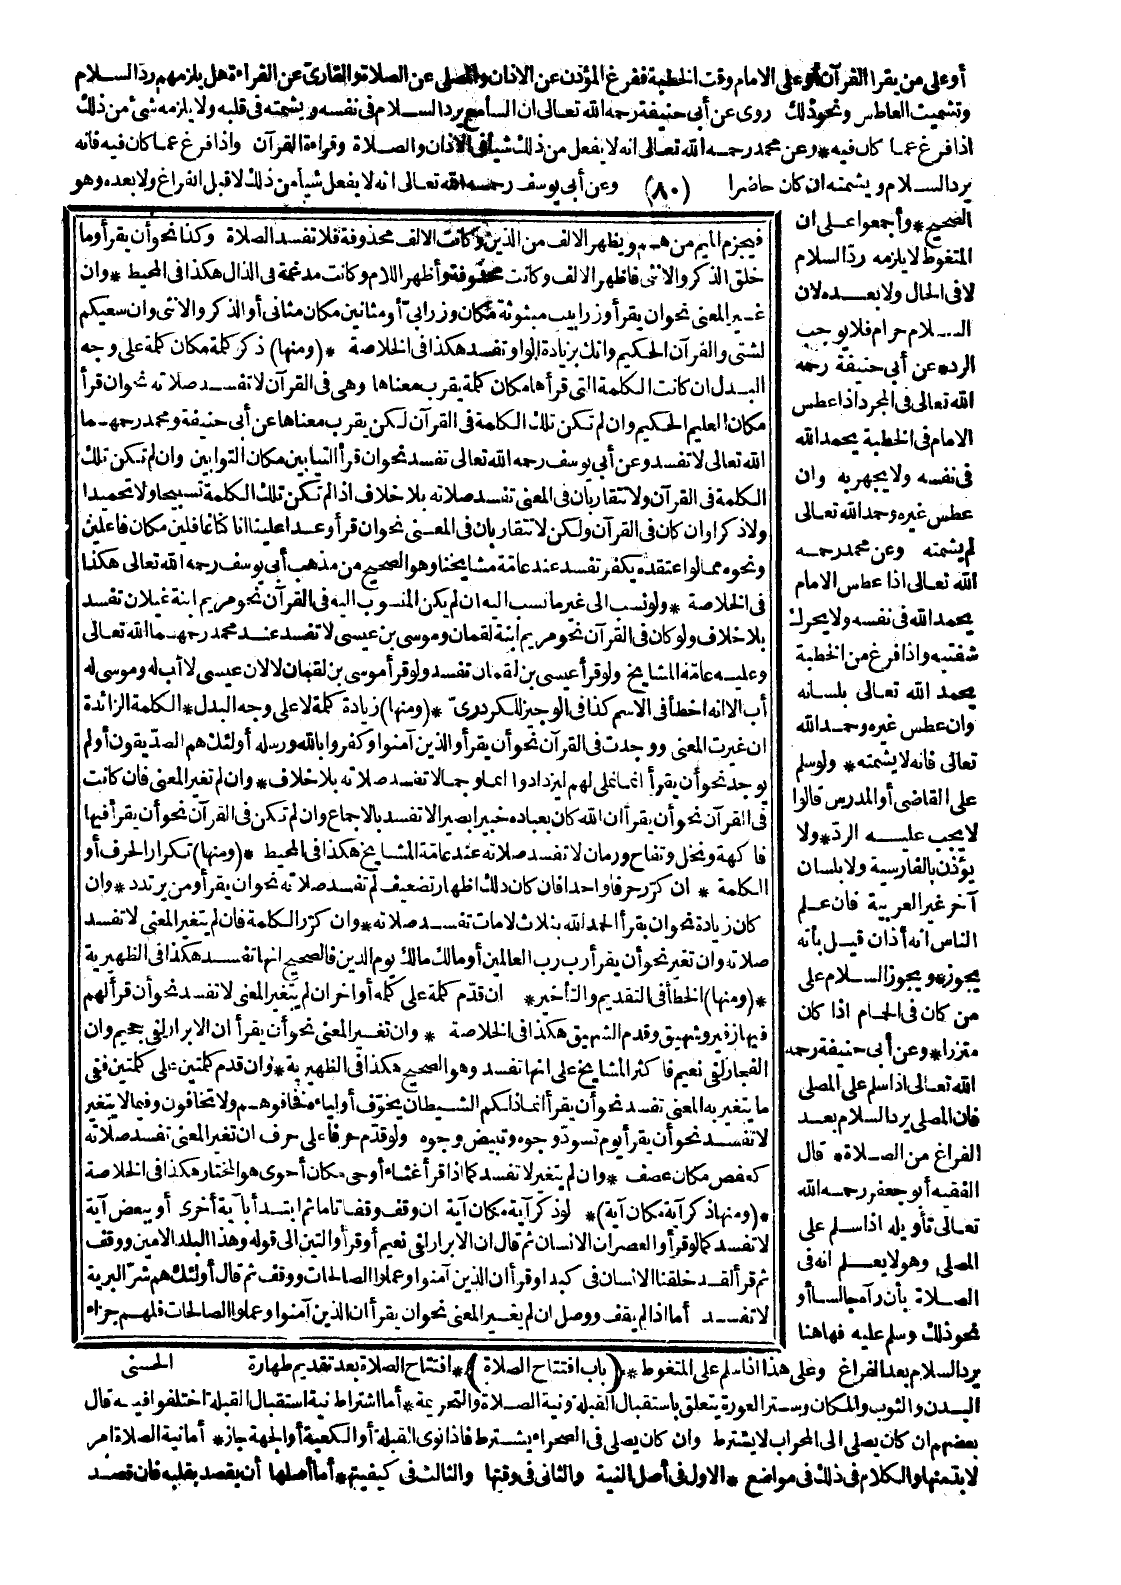 أو على من يقرا القرآن أو على الامام وقت الخطبة ففرغ المؤذن عن الاذان والمصلى عن الصلاة والقارئ عن القراءة هل يلزمهم رد السلام
وتشميت العاطس ونحو ذلك روى عن أبى حنيفة رحمه الله تعالى ان السامع يرد السلام فى نفسه ويشمته فى قلبه ولا يلزمه شئ من ذلك
اذا فرغ عما كان فيه * وعن محمد رحمه الله تعالى انه لا يفعل من ذلك شيأ فى الاذان والصلاة وقراءة القرآن واذا فرغ عما كان فيه فانه
يرد السلام ويشمته ان كان حاضرا (٨٠) وعن أبى يوسف رحمه الله تعالى انه لا يفعل شيأ من ذلك لا قبل الفراغ ولا بعده وهو
الصحيح * وأجمعوا على ان
المتغوط لا يلزمه رد السلام
لا فى الحال ولا بعده لان
السلام حرام فلا يوجب
الرد * عن أبى حنيفة رحمه
الله تعالى فى المجرد اذا عطس
الامام فى الخطبة يحمد الله
فى نفسه ولا يجهر به وان
عطس غيره وحمد الله تعالى
لم يشمته وعن محمد رحمه
الله تعالى اذا عطس الامام
يحمد الله فى نفسه ولا يحرك
شفتيه واذا فرغ من الخطبة
يحمد الله تعالى بلسانه
وان عطس غيره وحمد الله
تعالى فانه لا يشمته * ولو سلم
على القاضى أو المدرس قالوا
لا يجب عليه الرد * ولا
يؤذن بالفارسية ولا بلسان
آخر غير العربية فان علم
الناس انه أذان قيل بأنه
يجوز * ويجوز السلام على
من كان فى الحمام اذا كان
متزرا * وعن أبى حنيفة رحمه
الله تعالى اذا سلم على المصلى
فان المصلى يرد السلام بعد
الفراغ من الصلاة * قال
الفقيه أبو جعفر رحمه الله
تعالى تأويله اذا سلم على
المصلى وهو لا يعلم انه فى
الصلاة بأن رآه جالسا أو
نحو ذلك وسلم عليه فهاهنا
فيجزم الميم من هم ويظهر الالف من الذين وكانت الالف محذوفة فلا تفسد الصلاة وكذا نحو أن يقرأ وما
خلق الذكر والانثى فاظهر الالف وكانت محذوفة وأظهر اللام وكانت مدغمة فى الذال هكذا فى المحيط * وان
غير المعنى نحو ان يقرأ وزرابيب مبثوثة مكان وزرابى أو مثانين مكان مثانى أو الذكر والانثى وان سعيكم
لشتى والقرآن الحكيم وانك بزيادة الواو تفسد هكذا فى الخلاصة * (ومنها) ذكر كلمة مكان كلمة على وجه
البدل ان كانت الكلمة التى قرأها مكان كلمة يقرب معناها وهى فى القرآن لا تفسد صلاته نحو ان قرأ
مكان العليم الحكيم وان لم تكن تلك الكلمة فى القرآن لكن يقرب معناها عن أبى حنيفة ومحمد رحمهما
الله تعالى لا تفسد وعن أبى يوسف رحمه الله تعالى تفسد نحو ان قرأ التيابين مكان التوابين وان لم تكن تلك
الكلمة فى القرآن ولا تتقاربان فى المعنى تفسد صلاته بلا خلاف اذا لم تكن تلك الكلمة تسبيحا ولا تحميدا
ولا ذكرا وان كان فى القرآن ولكن لا تتقاربان فى المعنى نحو ان قرأ وعدا علينا انا كنا غافلين مكان فاعلين
ونحوه مما لو اعتقده يكفر تفسد عند عامة مشايخنا وهو الصحيح من مذهب أبى يوسف رحمه الله تعالى هكذا
فى الخلاصة * ولو نسب الى غير ما نسب اليه ان لم يكن المنسوب اليه فى القرآن نحو مريم ابنة غيلان تفسد
بلا خلاف ولو كان فى القرآن نحو مريم ابنة لقمان وموسى بن عيسى لا تفسد عند محمد رحمهما الله تعالى
وعليه عامة المشايخ ولو قرأ عيسى بن لقمان تفسد ولو قرأ موسى بن لقمان لا لان عيسى لا أب له وموسى له
أب الا انه اخطأ فى الاسم كذا فى الوجيز للكردرى * (ومنها) زيادة كلمة لا على وجه البدل * الكلمة الزائدة
ان غيرت المعنى ووجدت فى القرآن نحو أن يقرأ والذين آمنوا وكفروا بالله ورسله أولئك هم الصديقون أو لم
يوجد نحو أن يقرأ انما نملى لهم ليزدادوا اثما وجمالا تفسد صلاته بلا خلاف * وان لم تغير المعنى فان كانت
فى القرآن نحو أن يقرأ ان الله كان بعباده خبيرا بصيرا لا تفسد بالاجماع وان لم تكن فى القرآن نحو أن يقرأ فيها
فاكهة ونخل وتفاح ورمان لا تفسد صلاته عند عامة المشايخ هكذا فى المحيط * (ومنها) تكرار الحرف أو
الكلمة * ان كرر حرفا واحدا فان كان ذلك اظهار تضعيف لم تفسد صلاته نحو ان يقرأ ومن يرتدد * وان
كان زيادة نحو ان يقرأ الحمد لله بثلاث لامات تفسد صلاته * وان كرر الكلمة فان لم يتغير المعنى لا تفسد
صلاته وان تغير نحو أن يقرأ رب رب العالمين أو مالك مالك يوم الدين فالصحيح انها تفسد هكذا فى الظهيرية
* (ومنها) الخطأ فى التقديم والتأخير * ان قدم كلمة على كلمة أو اخر ان لم يتغير المعنى لا تفسد نحو أن قرأ لهم
فيها زفير وشهيق وقدم الشهيق هكذا فى الخلاصة * وان تغير المعنى نحو أن يقرأ ان الابرار لفى جحيم وان
الفجار لفى نعيم فاكثر المشايخ على انها تفسد وهو الصحيح هكذا فى الظهيرية * وان قدم كلمتين على كلمتين ففى
ما يتغير به المعنى تفسد نحو أن يقرأ انما ذلكم الشيطان يخوف أولياءه فخافوهم ولا تخافون وفيما لا يتغير
لا تفسد نحو أن يقرأ يوم تسود وجوه وتبيض وجوه ولو قدم حرفا على حرف ان تغير المعنى تفسد صلاته
كعفص مكان عصف * وان لم يتغير لا تفسد كما اذا قرأ غثاء أوحى مكان أحوى هو المختار هكذا فى الخلاصة
* (ومنها ذكر آية مكان آية) * لو ذكر آية مكان آية ان وقف وقفا تاما ثم ابتدأ بآية أخرى أو ببعض آية
لا تفسد كما لو قرأ والعصر ان الانسان ثم قال ان الابرار لفى نعيم أو قرأ والتين الى قوله وهذا البلد الامين ووقف
ثم قرأ لقد خلقنا الانسان فى كبد او قرأ ان الذين آمنوا وعملوا الصالحات ووقف ثم قال أولئك هم شر البرية
لا تفسد أما اذا لم يقف ووصل ان لم يغير المعنى نحو ان يقرأ ان الذين آمنوا وعملوا الصالحات فلهم جزاء
يرد السلام بعد الفراغ وعلى هذا اذا سلم على المتغوط * (باب افتتاح الصلاة) * افتتاح الصلاة بعد تقديم طهارة الحسنى
البدن والثوب والمكان وستر العورة يتعلق باستقبال القبلة ونية الصلاة والتحريمة * أما اشتراط نية استقبال القبلة اختلفوا فيه قال
بعضهم ان كان يصلى الى المحراب لا يشترط وان كان يصلى فى الصحراء يشترط فاذا نوى القبلة أو الكعبة أو الجهة جاز * أما نية الصلاة امر
لا بد منها والكلام فى ذلك فى مواضع * الاول فى أصل النية والثانى فى وقتها والثالث فى كيفيتها * أما أصلها أن يقصد بقلبه فان قصد